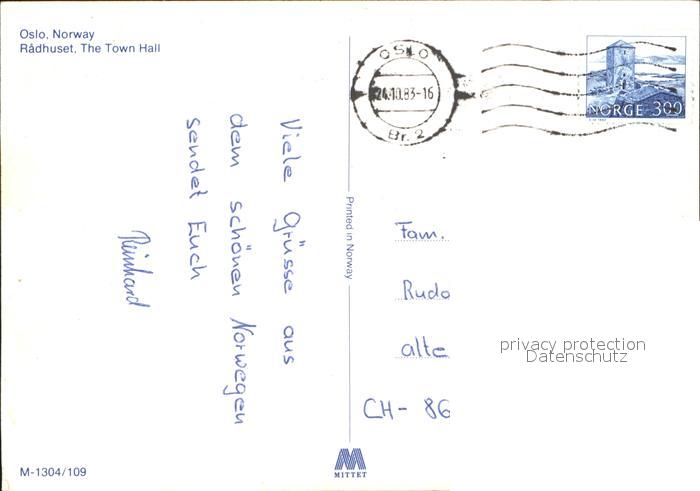 Oslo, Norway
Rådhuset, The Town Hall
OSLO
24.10.83-16
Br. 2
NORGE 300
Viele Grüsse aus
dem schönen Norwegen
sendet Euch
Reinhard
Printed in Norway
Fam.
Rudo
alte
CH- 86
privacy protection
Datenschutz
M-1304/109
MITTET